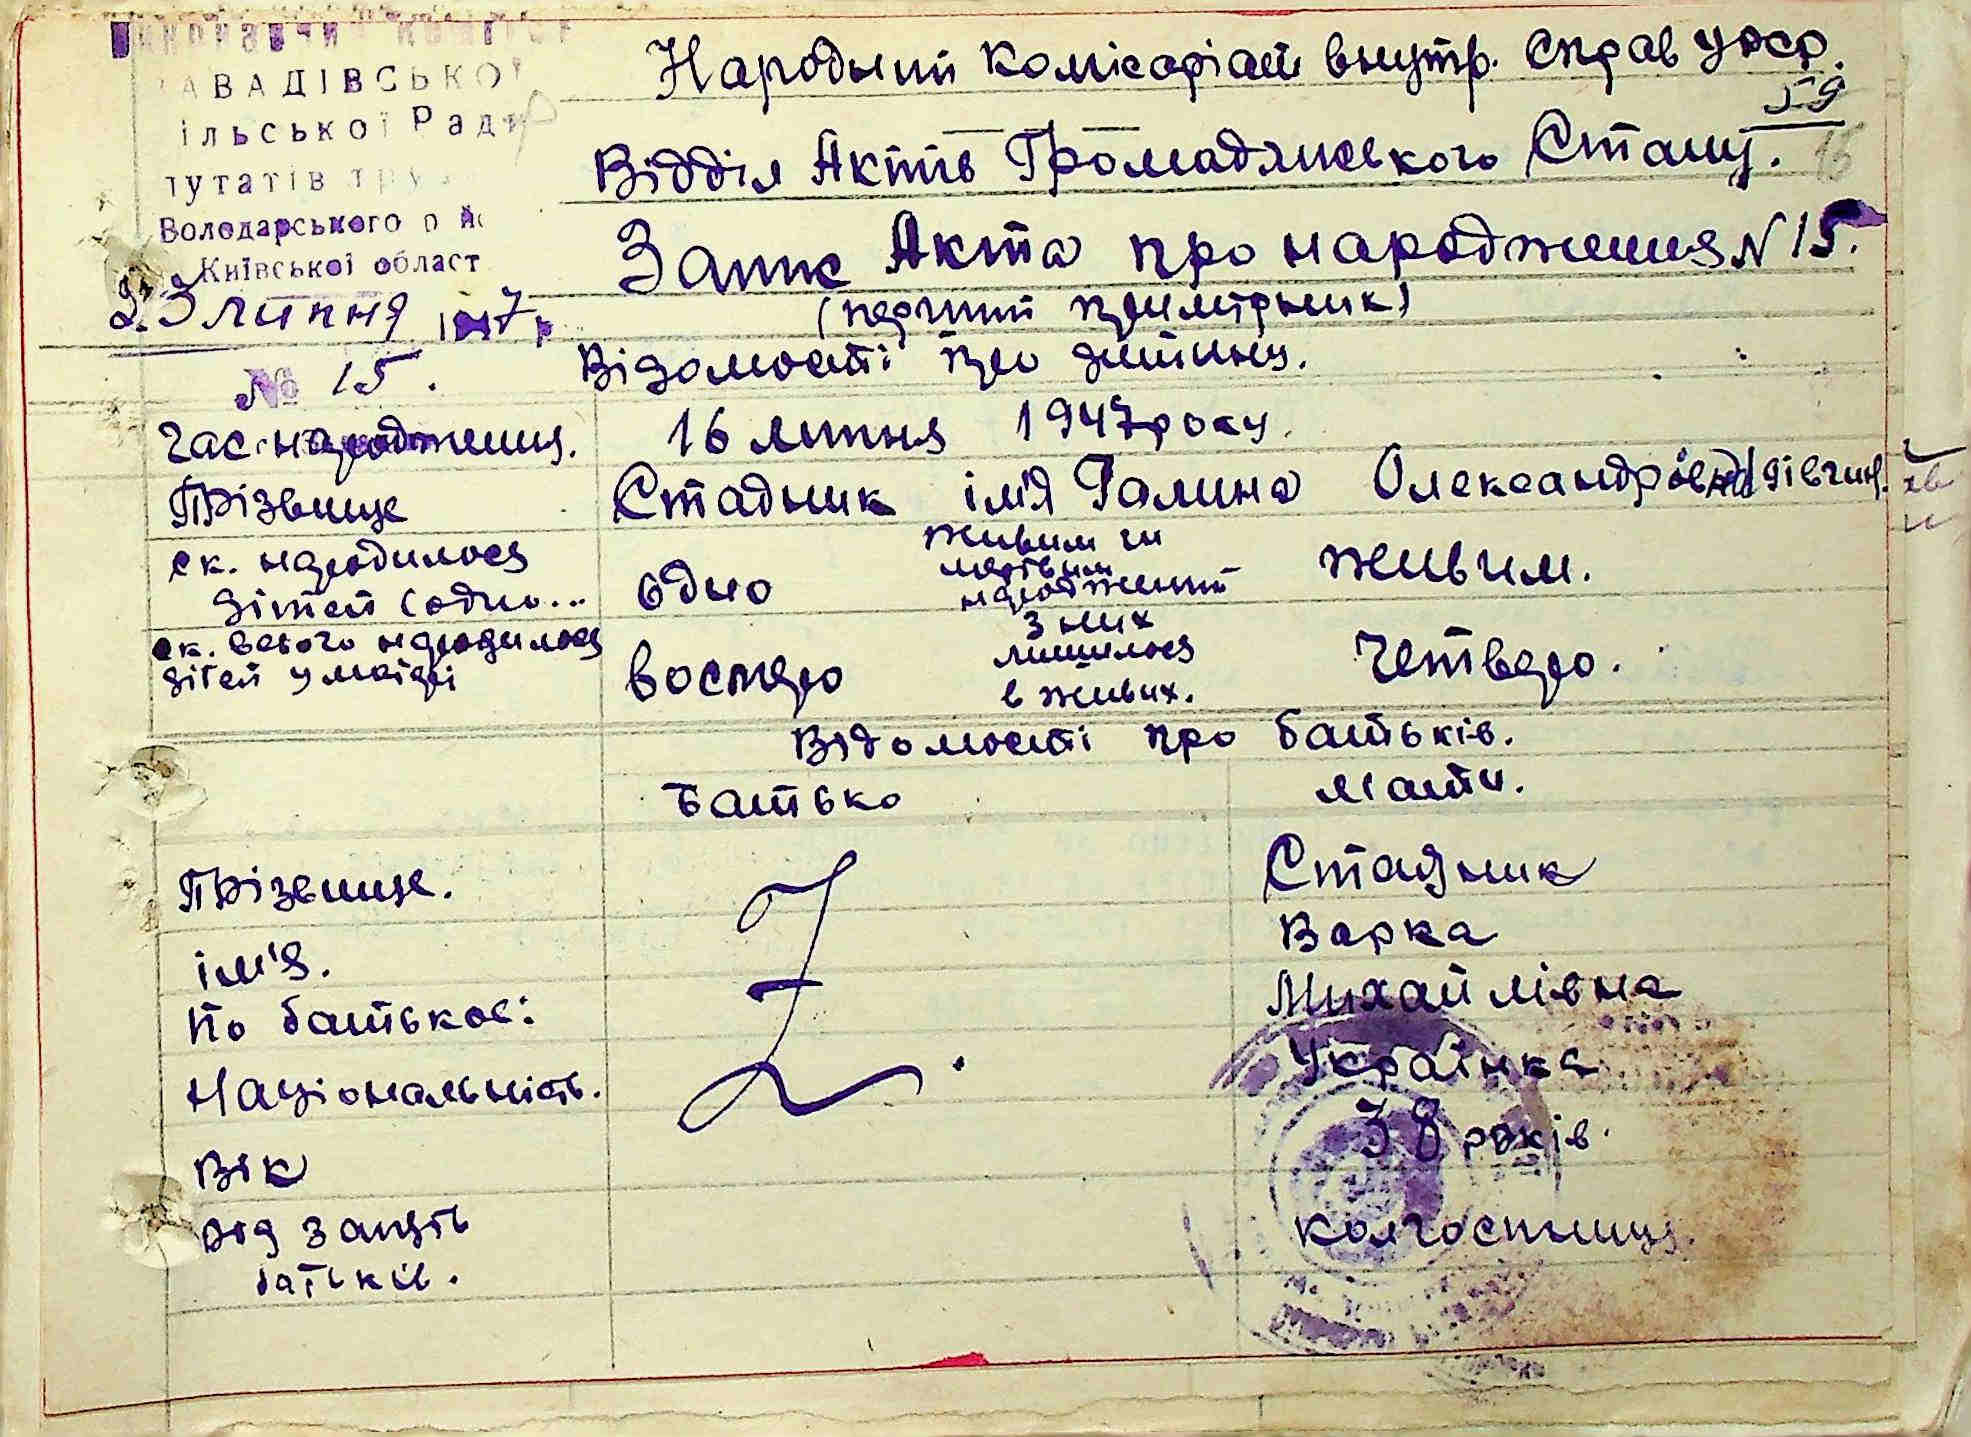 Виконавчи комітет
АВАДІВСЬКОЇ
ільської Ради
путатів тру
Володарського рай
Київської област
23 липня 1947 р
№ 15.
Народний комісаріат внутр. справ УРСР.
59
16
Відділ Актів Громадянського Стану.
Запис Акта про народження N 15.
(перший примірник)
Відомості про дитину.
Час народження. 16 липня 1947 року.
Прізвище Стадник ім'я Галина Олександрівна дівчин.
ск. народилося дітей (одно... одно живим чи мертвим народжений живим.
ск. всього народилося дітей у матері восьмеро з них лишилося в живих. Четверо.
Відомості про батьків.
Батько Мати.
Прізвище. Стадник
ім'я. Варка
По батькові: Михайлівна
Національність. Українка
Вік 38 років.
рід занять батьків. колгоспниця.